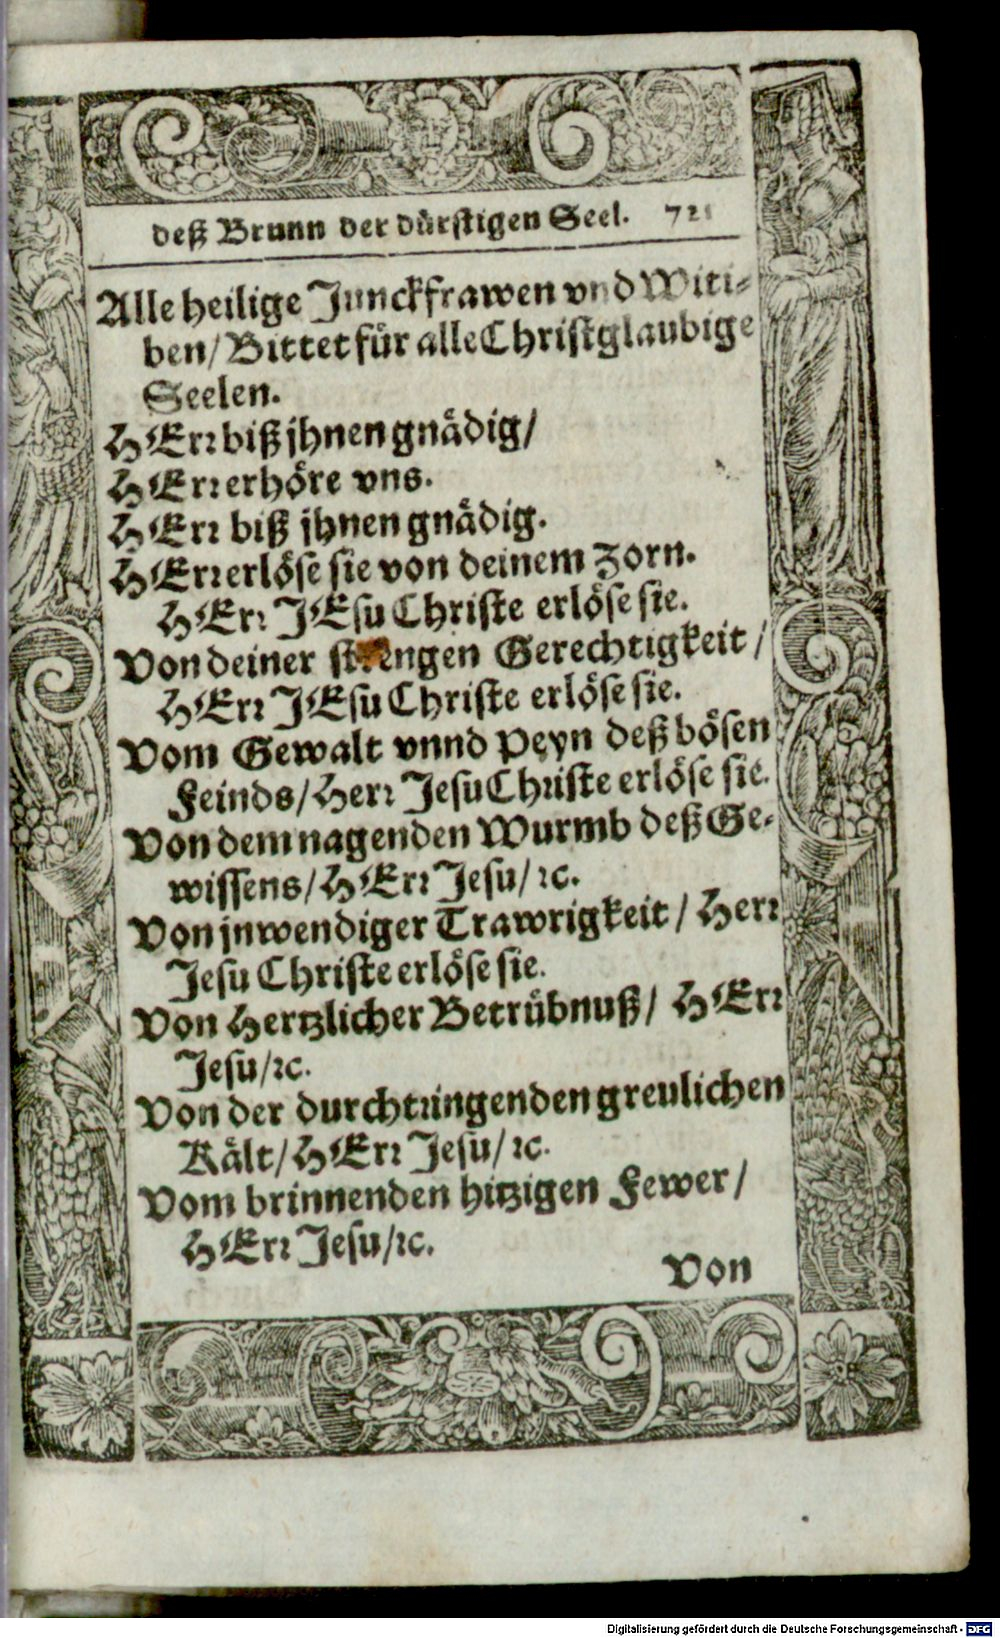 deß Brunn der dürstigen Seel. 721
Alle heilige Junckfrawen vnd Witi-
ben/ Bittet für alle Christglaubige
Seelen.
HErr biß jhnen gnädig/
HErr erhöre vns.
HErr biß jhnen gnädig.
HErr erlöse sie von deinem Zorn.
HErr JEsu Christe erlöse sie.
Von deiner strengen Gerechtigkeit/
HErr JEsu Christe erlöse sie.
Vom Gewalt vnnd Peyn deß bösen
Feinds/ Herr Jesu Christe erlöse sie.
Von dem nagenden Wurmb deß Ge-
wissens/ HErr Jesu/ ꝛc.
Von jnwendiger Trawrigkeit/ Herr
Jesu Christe erlöse sie.
Von Hertzlicher Betrübnuß/ HErr
Jesu/ ꝛc.
Von der durchtringenden greulichen
Kält/ HErr Jesu/ ꝛc.
Vom brinnenden hitzigen Fewer/
HErr Jesu/ ꝛc.
Von
Digitalisierung gefördert durch die Deutsche Forschungsgemeinschaft - DFG